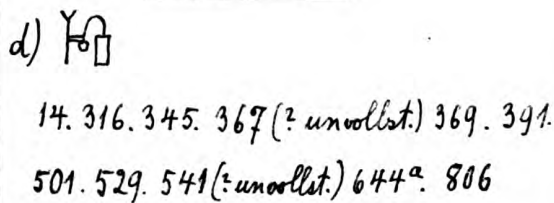 d)
14. 316. 345. 367 (? unvollst.) 369. 391.
501. 529. 541 (? unvollst.) 644ᵃ. 806